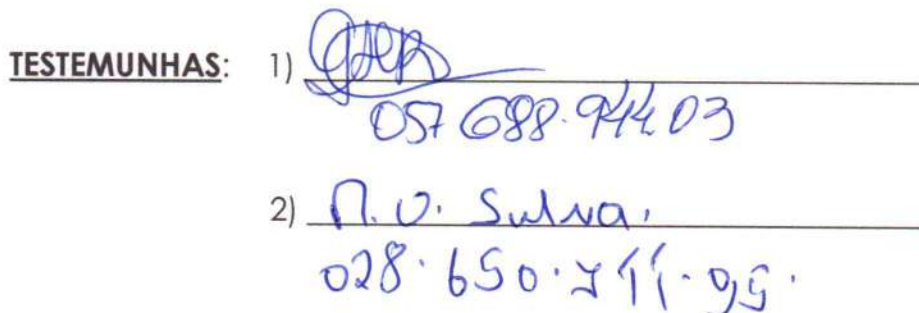 TESTEMUNHAS: 1)
057 688.944.03
2) M.O. Silva.
028.650.711.95.